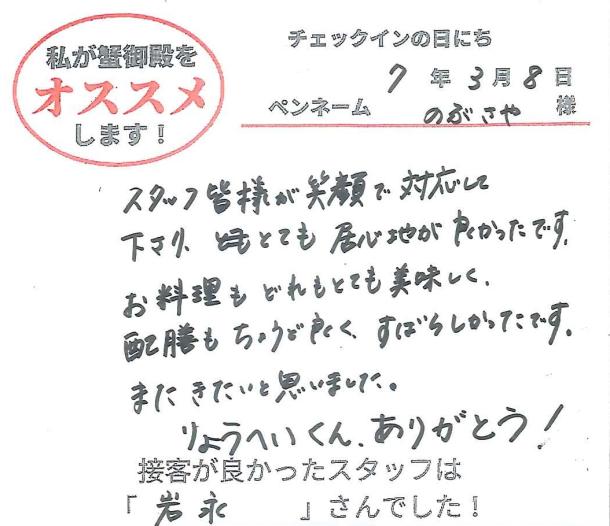 私が蟹御殿を
オススメ
します！
チェックインの日にち
7年3月8日
ペンネーム のぶさや 様
スタッフ皆様が笑顔で対応して
下さり、とてもとても居心地が良かったです。
お料理もどれもとても美味しく、
配膳もちょうど良く、すばらしかったです。
またきたいと思いました。
りょうへいくん、ありがとう！
接客が良かったスタッフは
「岩永」さんでした！